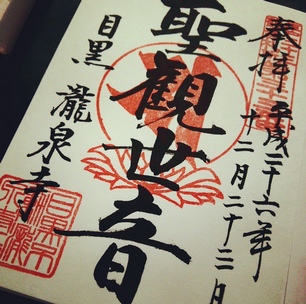 奉拝 平成二十六年
十二月二十三日
聖観世音
目黒 瀧泉寺